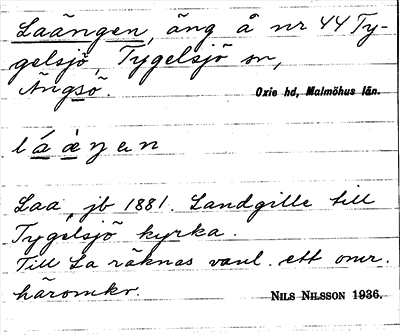 Laängen, äng å nr 44 Ty-
gelsjö, Tygelsjö sn,
Ängsö.
Oxie hd, Malmöhus län.
lá̱ æ̱̀ŋen
Laa, jb 1881. Landgille till
Tygelsjö kyrka.
Till La räknas vanl. ett omr.
häromkr.
NILS NILSSON 1936.